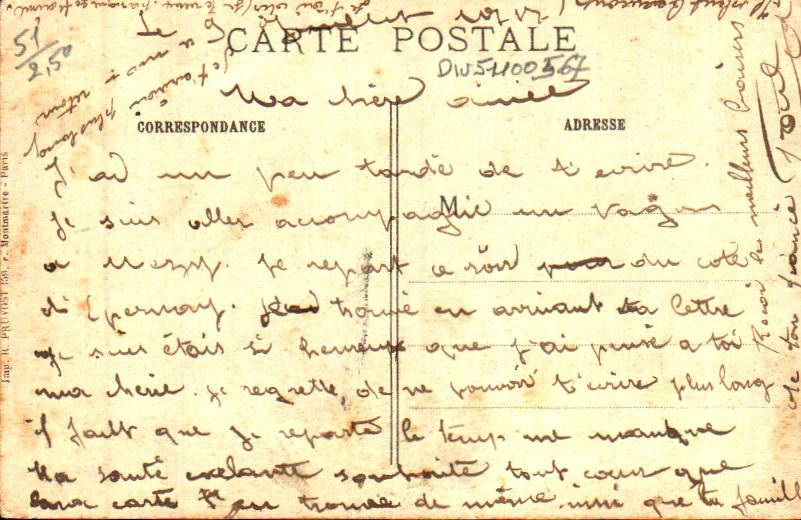 Le 9 Juillet 1917
CARTE POSTALE
51
2,50
DIV51100567
Ma chère amie
CORRESPONDANCE
ADRESSE
M
J'ai un peu tardé de t'ecrire.
Je suis aller accompaglie un vagon
a Mezy. Je repart ce soir du coté
d'Epernay. J'ai trouvé en arrivant ta lettre
Je suis étais si heureux que j'ai pensé a toi
ma cherie. Je regrette, de ne pouvoir t'ecrire plus long
il fait que je reparte le temps me manque
Ma santé exelante souhaite tout coeur que
carte t'en trouve de même. insi que ta famille
Recoit le meilleurs baisers
de ton fiancé
plus long
Imp. R. PRUVOST 159, r. Montmartre - Paris